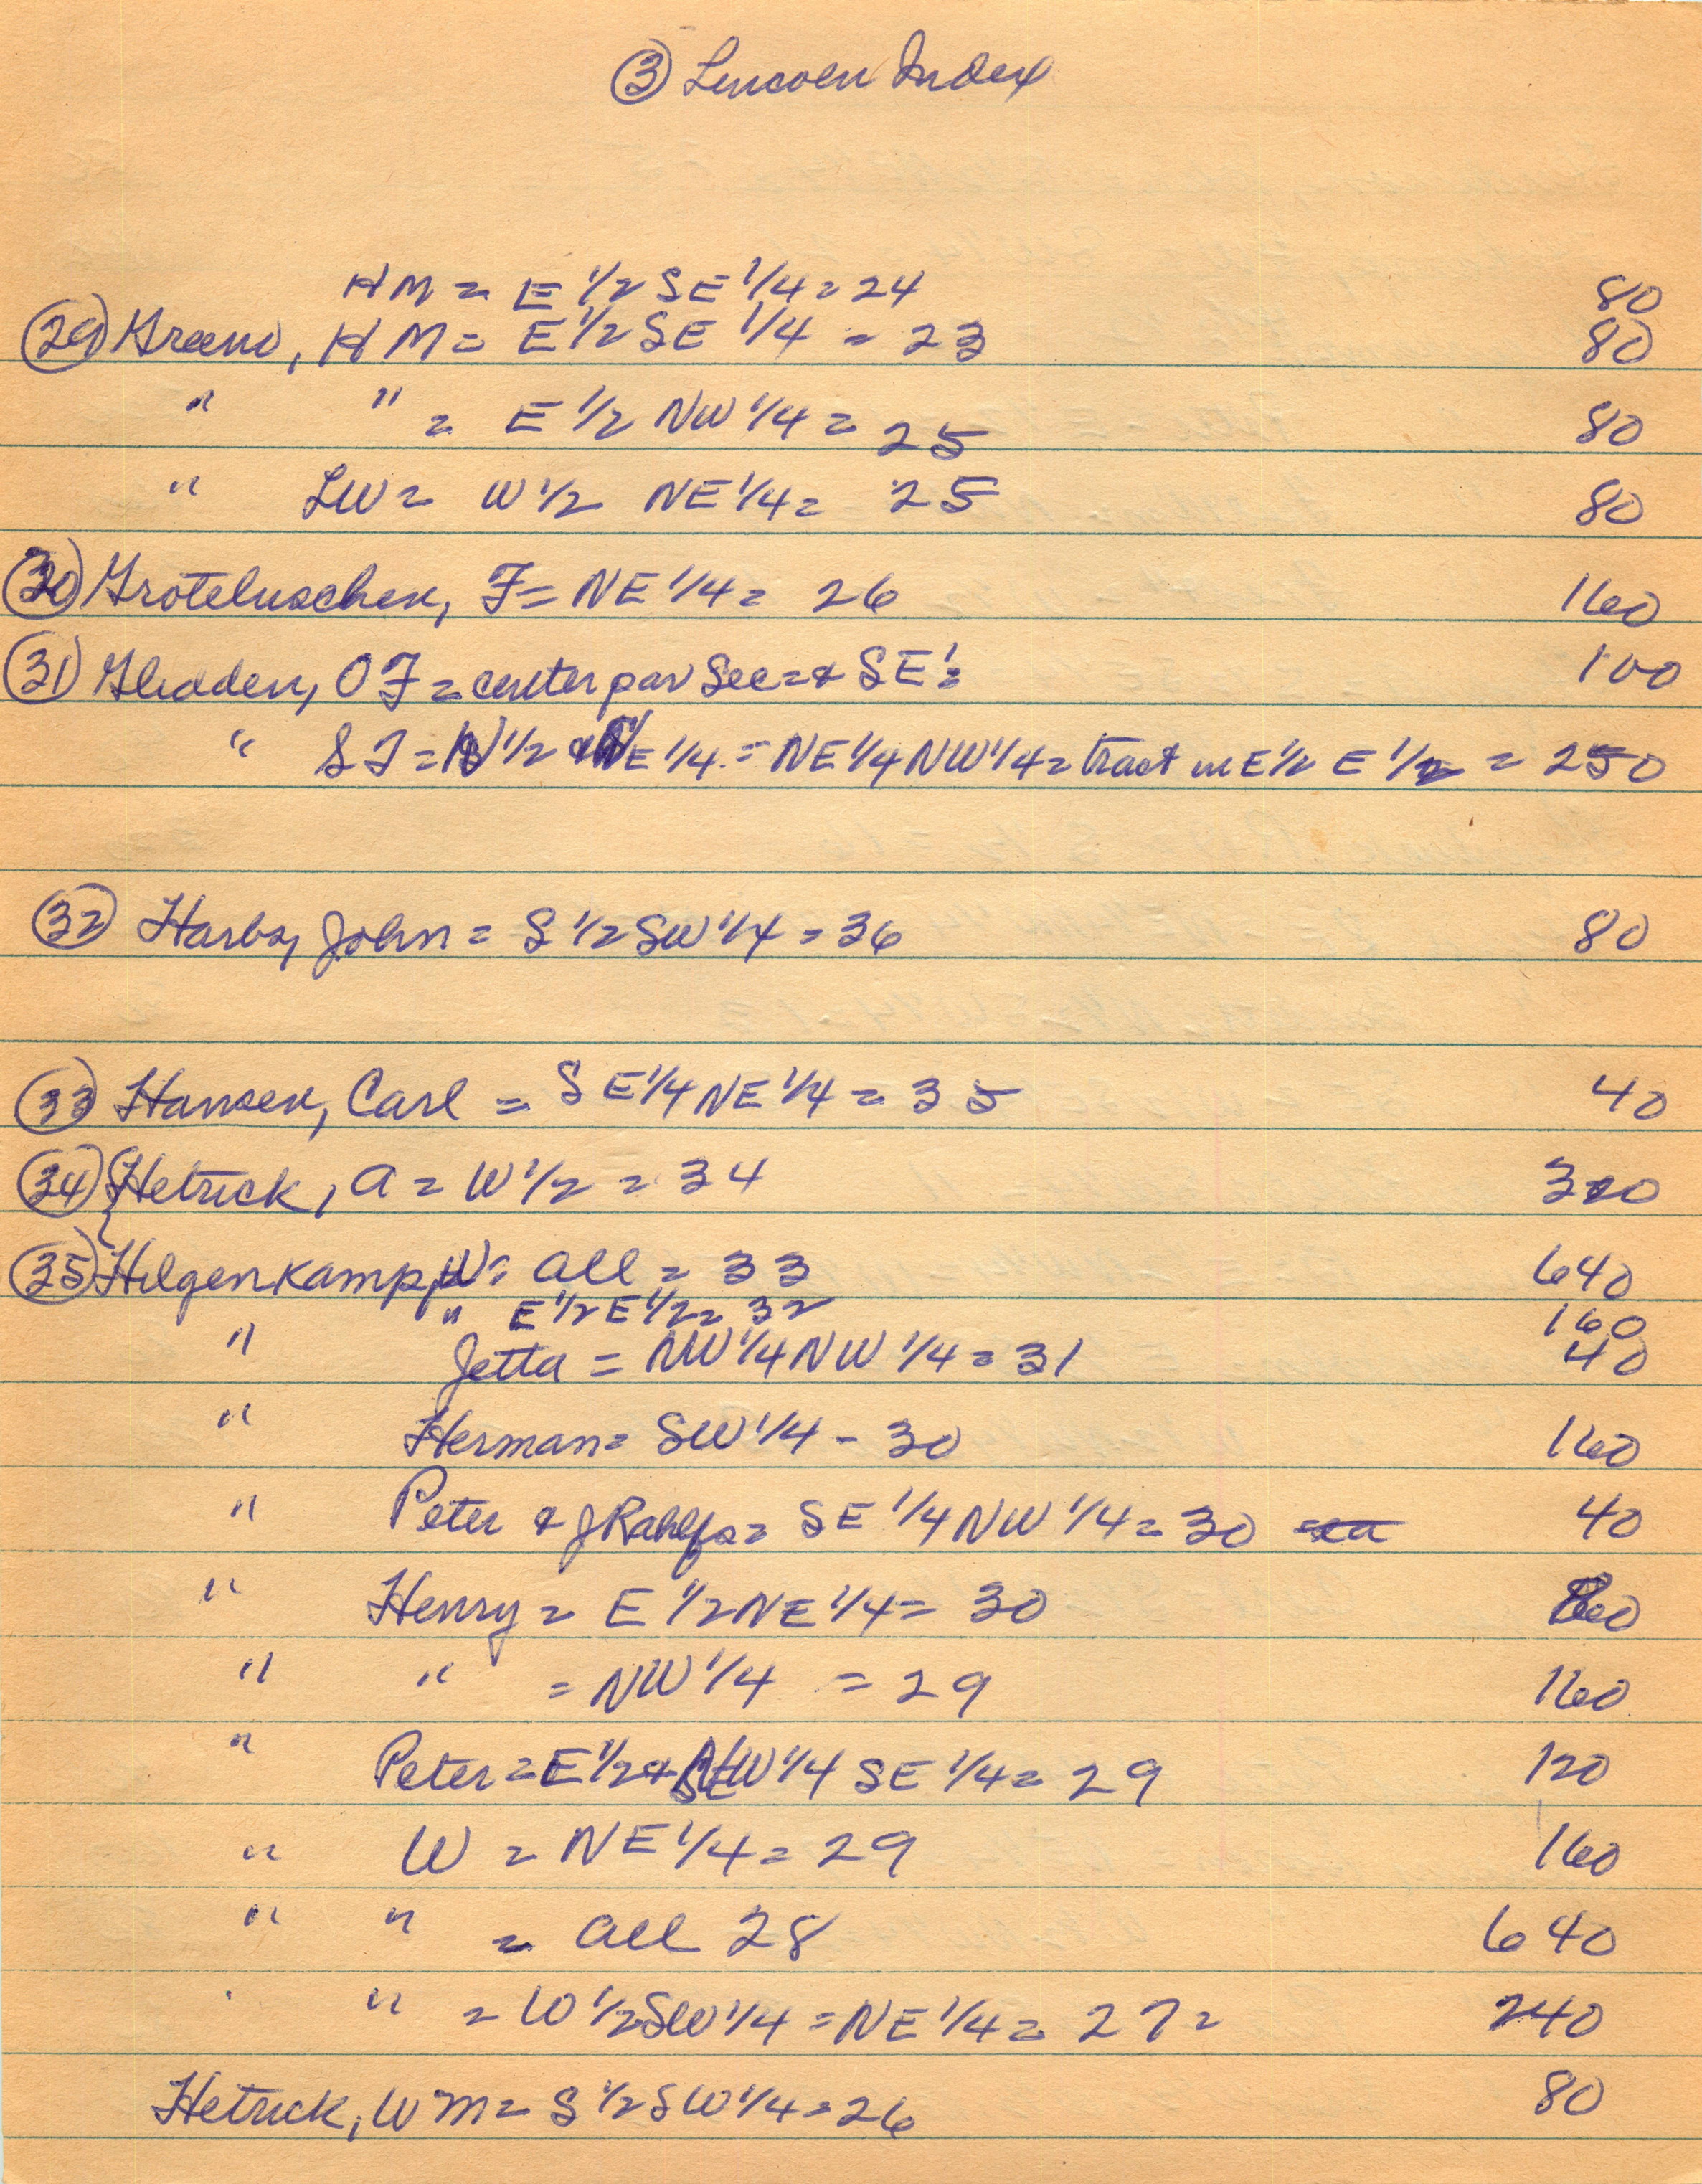 ③ Lincoln Index
HM = E 1/2 SE 1/4 = 24 80
㉙ Greeno, HM = E 1/2 SE 1/4 = 23 80
" " = E 1/2 NW 1/4 = 25 80
" LW = W 1/2 NE 1/4 = 25 80
㉚ Groteluschen, F = NE 1/4 = 26 160
㉛ Gladden, OF = center par Sec = & SE' = 100
" SF = N 1/2 & NE 1/4 = NE 1/4 NW 1/4 = tract in E 1/2 E 1/2 = 250
㉜ Harbs, John = S 1/2 SW 1/4 = 36 80
㉝ Hansen, Carl = SE 1/4 NE 1/4 = 35 40
㉞ Hetrick, A = W 1/2 = 34 320
㉟ Hilgenkamp, W = all = 33 640
" E 1/2 E 1/2 = 32 160
" Jetta = NW 1/4 NW 1/4 = 31 40
" Herman = SW 1/4 - 30 160
" Peter & J Rahlfs = SE 1/4 NW 1/4 = 30 40
" Henry = E 1/2 NE 1/4 = 30 80
" " = NW 1/4 = 29 160
" Peter = E 1/2 & 1/4 SE 1/4 = 29 120
" W = NE 1/4 = 29 160
" " = all 28 640
" = W 1/2 SW 1/4 = NE 1/4 = 27 = 240
Hetrick, Wm = S 1/2 SW 1/4 = 26 80